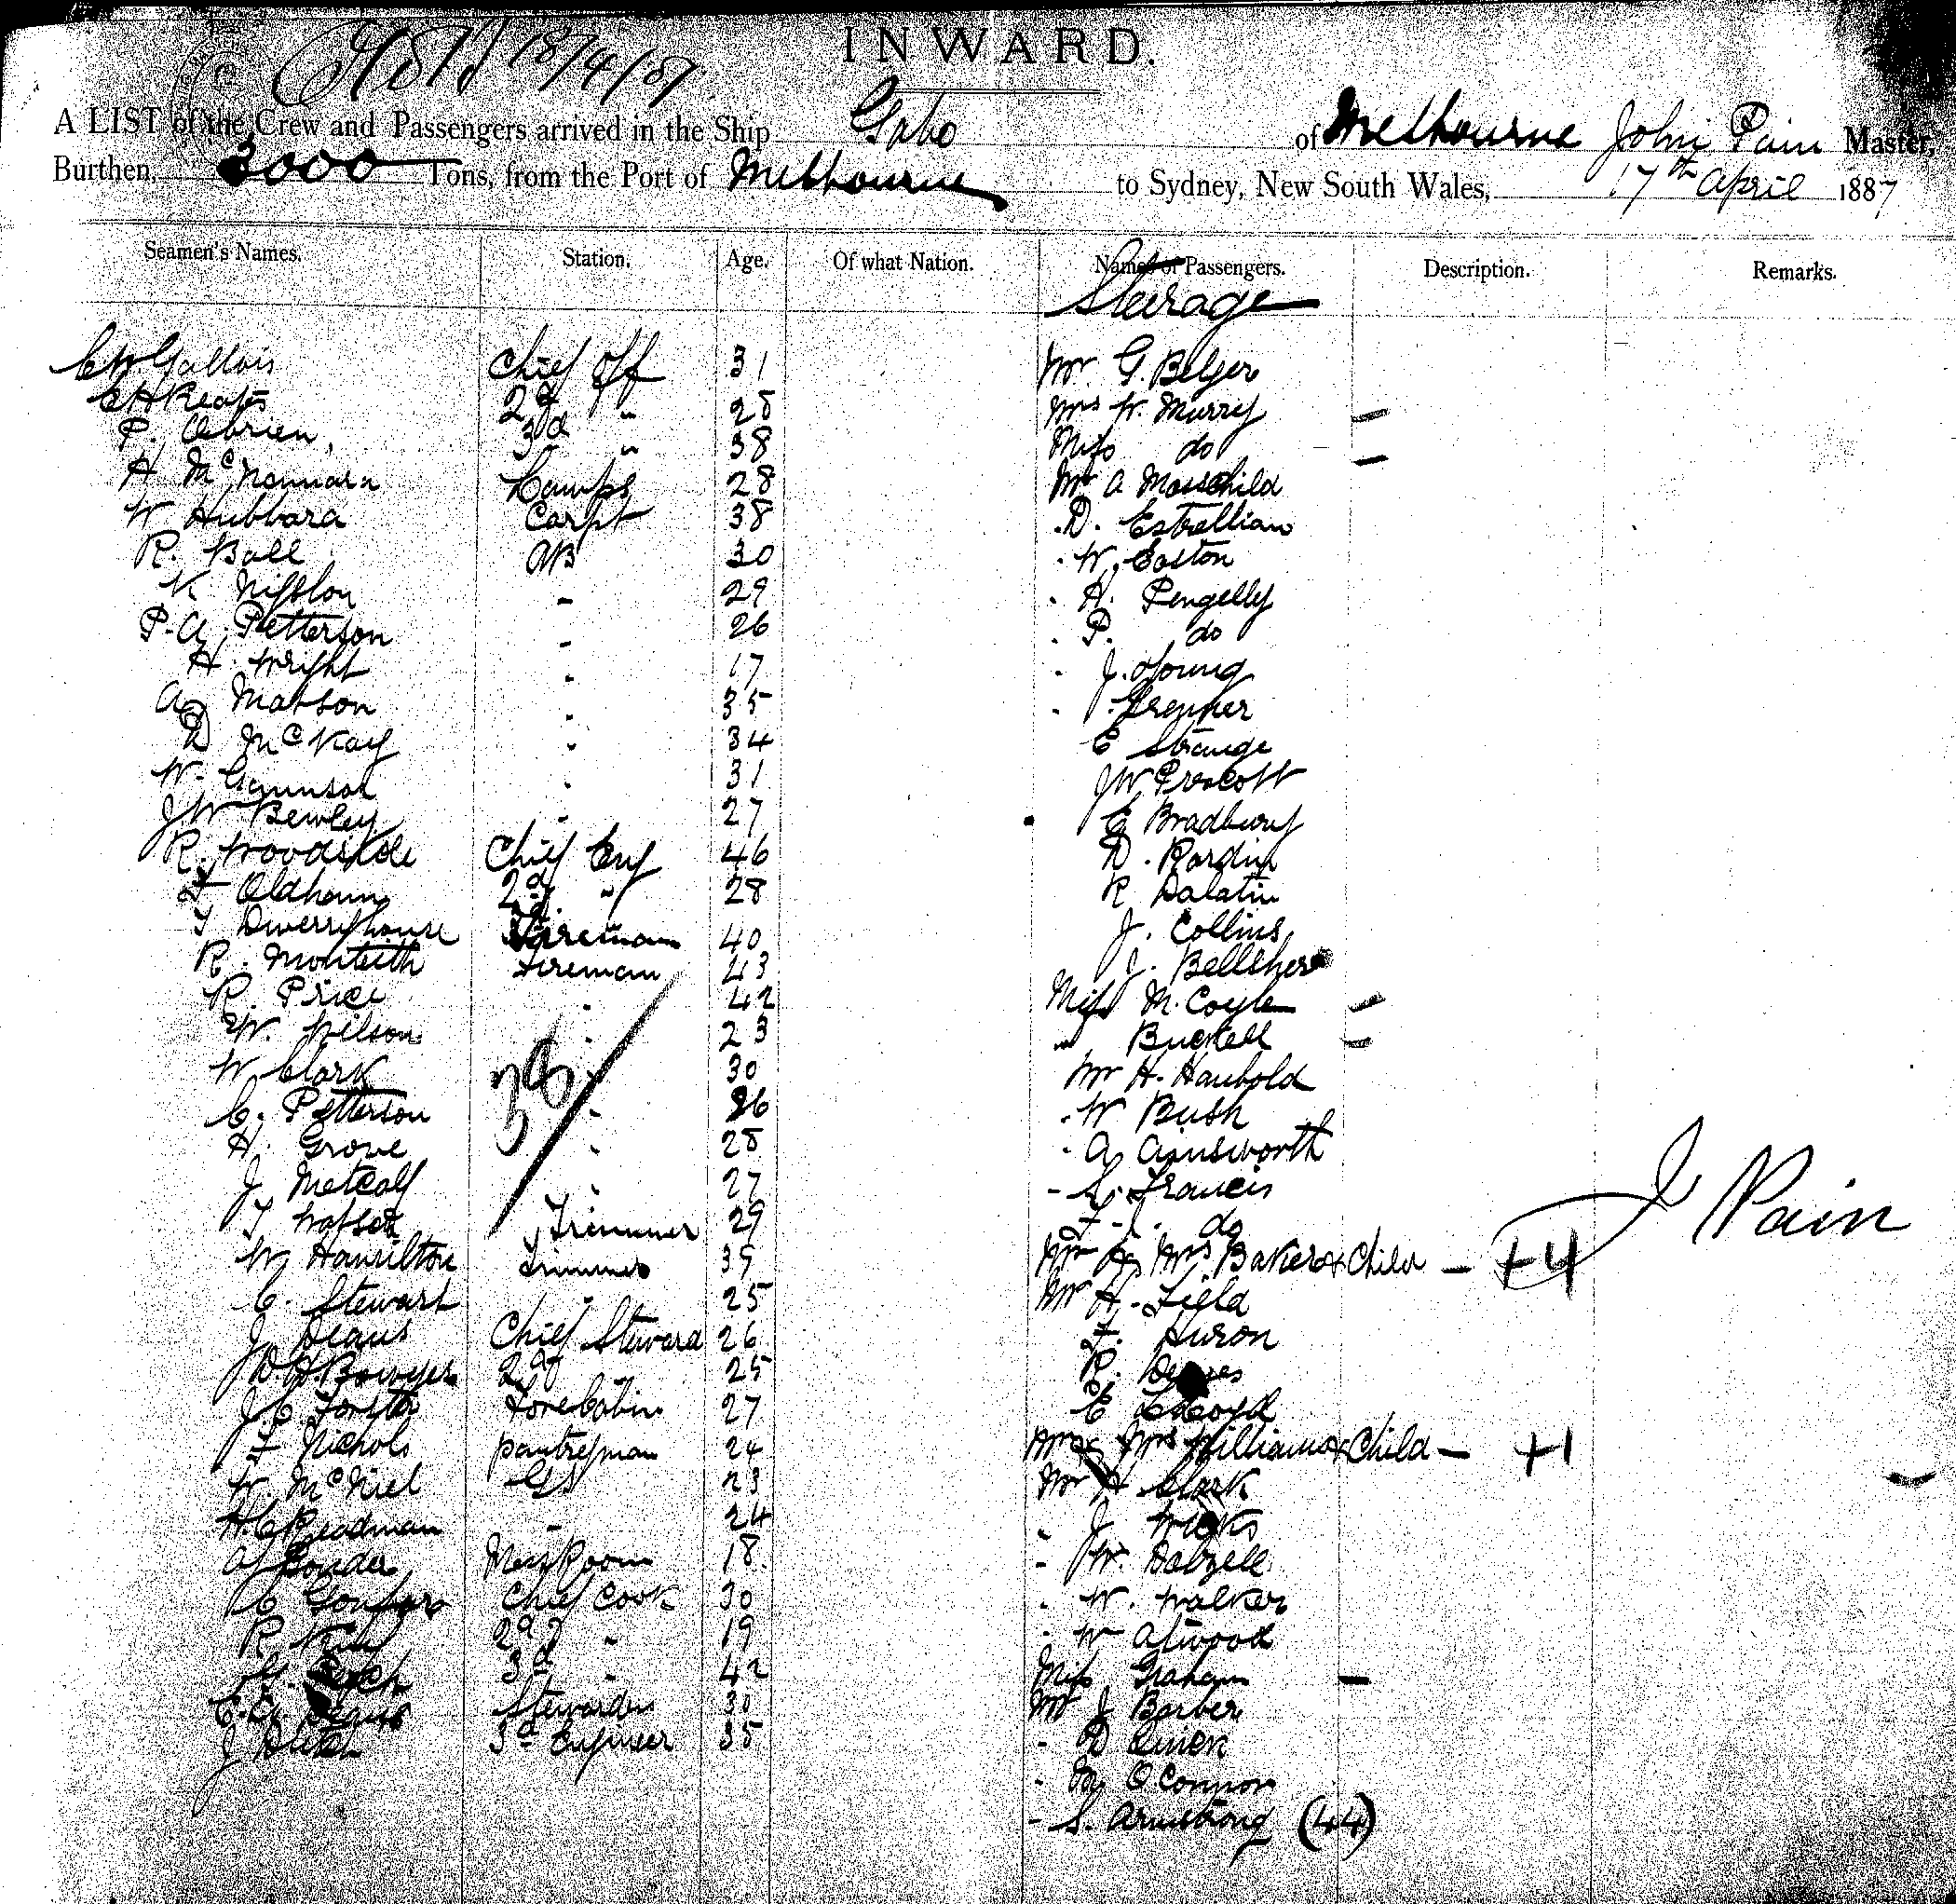 18/4/87
INWARD.
A LIST of the Crew and Passengers arrived in the Ship Gabo of Melbourne John Pain Master,
Burthen, 3000 Tons, from the Port of Melbourne to Sydney, New South Wales, 17th April 1887
Seamen's Names. Station. Age. Of what Nation. Names of Passengers. Description. Remarks.
Steerage
C W Gallois Chief Off 31 Mr G. Belger
Keats 2d " 28 Mrs W. Murry –
P. Obrien, 3d " 38 Miss do –
H McNamara Lamps 28 Mr A
W Hubbard Carpt 38 . D.
R. Ball AB 30 . W. Easton
K - 29 . H. Pengelly
P. A. Petterson - 26 . P. do
H. Wright - 17 . J. Young
A Matson - 35 .
D McKay - 34 E Strange
W. - 31 JW Prescott
JW Bewley - 27 E Bradbury
R. Chief Eng 46 D.
F Oldham 2d. " 28 R
T Dwerryhouse Fireman 40 J. Collins
R. Monteith Fireman 43 J.
R. Price - 42 Miss M. Coyle –
W. Wilson - 23 " Buckell –
W Clark - 30 Mr H. Haubold
C. Petterson - 26 . W Bush
H. Grove - 28 . A Ainsworth
J. Metcalf - 27 - Francis
T Trimmer 29 F. do
W Hamilton Trimmer 39 Mr & Mrs Baker & Child – +4
J Pain
C. Stewart - 25 Mr H. Field
J Deans Chief Steward 26 F. Huron
Bowyer 2d " 25 R.
J C Forster Forecabin 27 E Lloyd
F Nichols pantryman 24 Mr & Mrs Williams & Child – +1
W. McNiel GS 23 Mr H Clark
H. C Readman - 24 . J
A Mess Room 18. - W. Dalzell
C Chief Cook 30 . W. Walker
R 2d " 19 . W Atwood
3d " 42 Miss Graham –
Stewardess 30 Mr J Barber
J 3d Engineer 35 - D
. M. O Connor
- S. Armstrong (44)